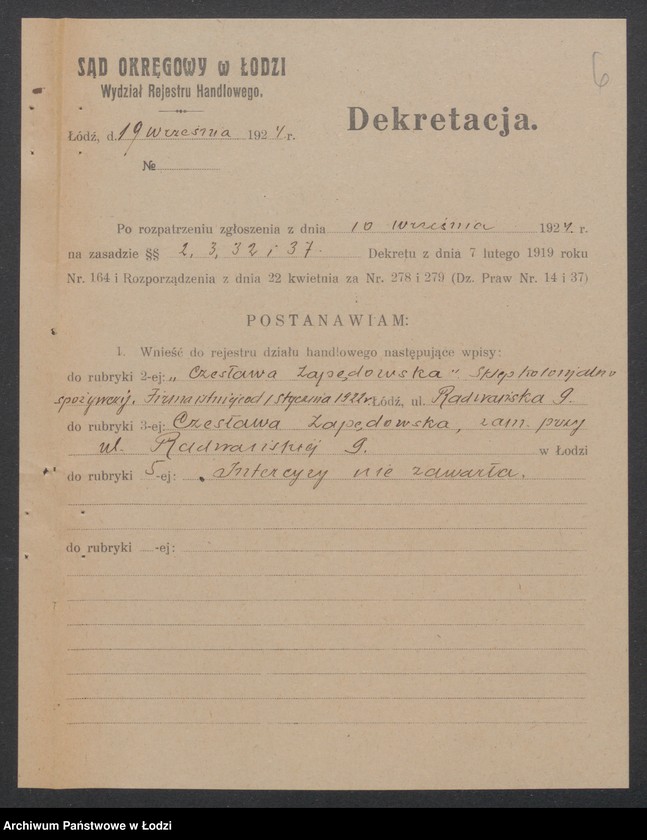 6
SĄD OKRĘGOWY w ŁODZI
Wydział Rejestru Handlowego.
Dekretacja.
Łódź, d. 19 września 1924 r.
№
Po rozpatrzeniu zgłoszenia z dnia 10 września 1924. r.
na zasadzie §§ 2, 3, 32 i 37. Dekretu z dnia 7 lutego 1919 roku
Nr. 164 i Rozporządzenia z dnia 22 kwietnia za Nr. 278 i 279 (Dz. Praw Nr. 14 i 37)
POSTANAWIAM:
1. Wnieść do rejestru działu handlowego następujące wpisy:
do rubryki 2-ej: „Czesława Zapędowska" Sklep kolonjalno
spożywczy. Firma istnieje od 1 stycznia 1922 r. Łódź, ul. Radwańska 9.
do rubryki 3-ej: Czesława Zapędowska, zam. przy
ul. Radwańskiej 9. w Łodzi
do rubryki 5-ej: Intercyzy nie zawarła.
do rubryki -ej:
Archiwum Państwowe w Łodzi